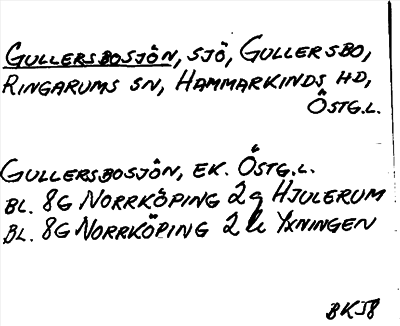 GULLERSBOSJÖN, SJÖ, GULLERSBO,
RINGARUMS SN, HAMMARKINDS HD,
ÖSTG.L.
GULLERSBOSJÖN, EK. ÖSTG.L.
BL. 8G NORRKÖPING 2g HJULERUM
BL. 8G NORRKÖPING 2h YXNINGEN
BKJ8